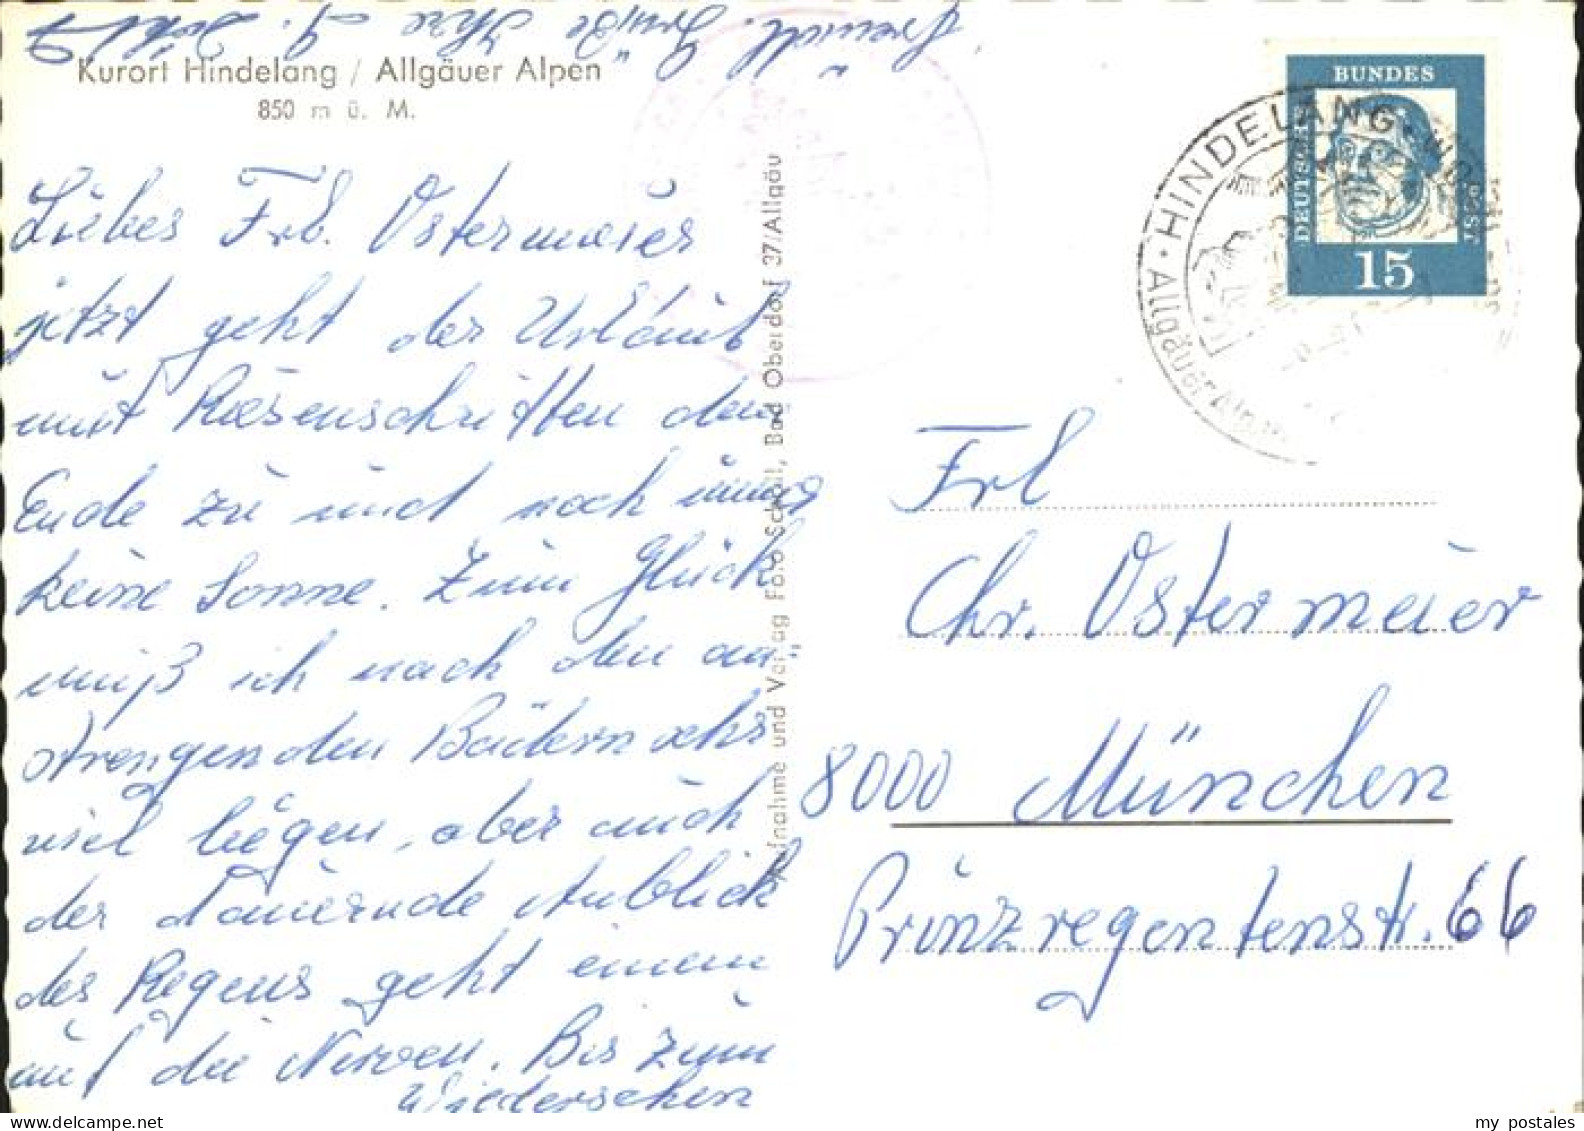 Kurort Hindelang / Allgäuer Alpen
850 m ü. M.
Liebes Frl. Ostermeier
jetzt geht der Urlaub
mit Riesenschritten dem
Ende zu und noch immer
keine Sonne. Zum Glück
muß ich nach den an-
strengenden Bädern sehr
viel liegen, aber auch
der dauernde Anblick
des Regens geht einem
auf die Nerven. Bis zum
Wiedersehen
Ihre
Aufnahme und Verlag Foto Scholl, Bad Oberdorf 37/Allgäu
DEUTSCHE BUNDESPOST
15
HINDELANG
Allgäuer Alpen
Frl
Chr. Ostermeier
8000 München
Prinzregentenstr. 66
my postales